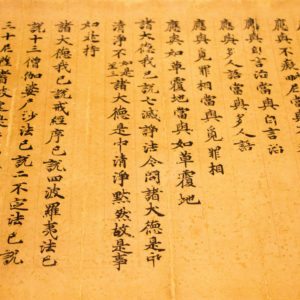 應與不癡
應與自言治當與自言治
應與多人語當與多人語
應與覓罪相當與覓罪相
應與如草覆地當與如草覆地
諸大德我已說七滅諍法今問諸大德是中
清淨不如是三諸大德是中清淨默然故是事
如是持
諸大德我已說戒經序已說四波羅夷法已
說十三僧伽婆尸沙法已說二不定法已說
三十尼薩耆波